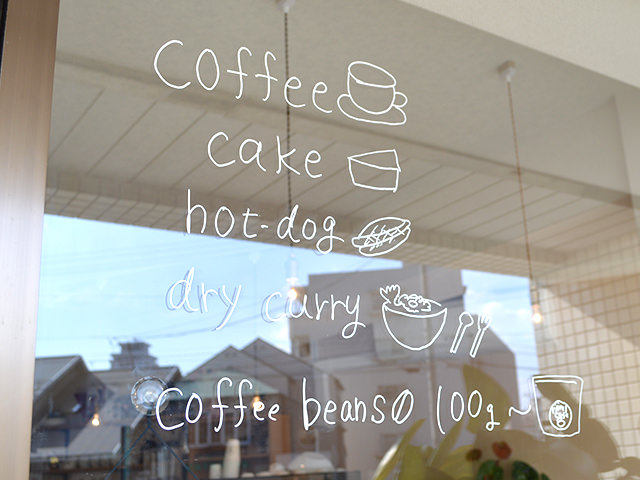 coffee
cake
hot-dog
dry curry
coffee beans 100g~